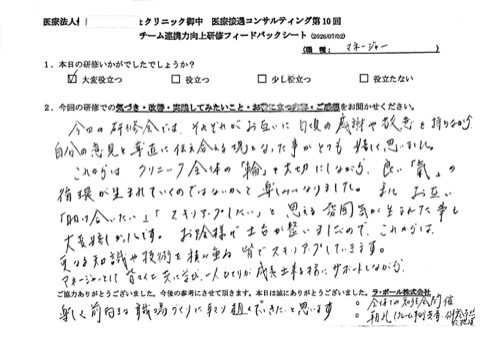 医療法人 クリニック御中 医療接遇コンサルティング第10回
チーム連携力向上研修フィードバックシート (2026/07/02)
(職種: マネージャー )
1.本日の研修いかがでしたでしょうか?
☑大変役立つ □役立つ □少し役立つ □役立たない
2.今回の研修での気づき・改善・実践してみたいこと・お役に立つ内容・ご感想をお聞かせください。
今回の研修会では、それぞれがお互いに日頃の感謝や敬意を持ちながら
自分の意見を率直に伝え合える場となった事がとても嬉しく思いました。
これからは クリニック全体の「輪」を大切にしながら、良い「氣」の
循環が生まれていくのではないかと楽しみになりました。また お互い
「助け合いたい」「スキルアップしたい」と思える雰囲気が生まれた事も
大変嬉しかったです。お陰様で土台が整いましたので、これからは、
更なる知識や技術を積み重ね 皆でスキルアップしていきます。
マネージャーとして 皆さんと共に学び、一人ひとりが成長出来る様にサポートしながら、
ご協力ありがとうございました。今後の参考にさせて頂きます。本日は誠にありがとうございました。ラ・ポール株式会社
楽しく前向きな職場づくりに取り組んでいきたいと思います
○全体での知識会開催
○朝礼